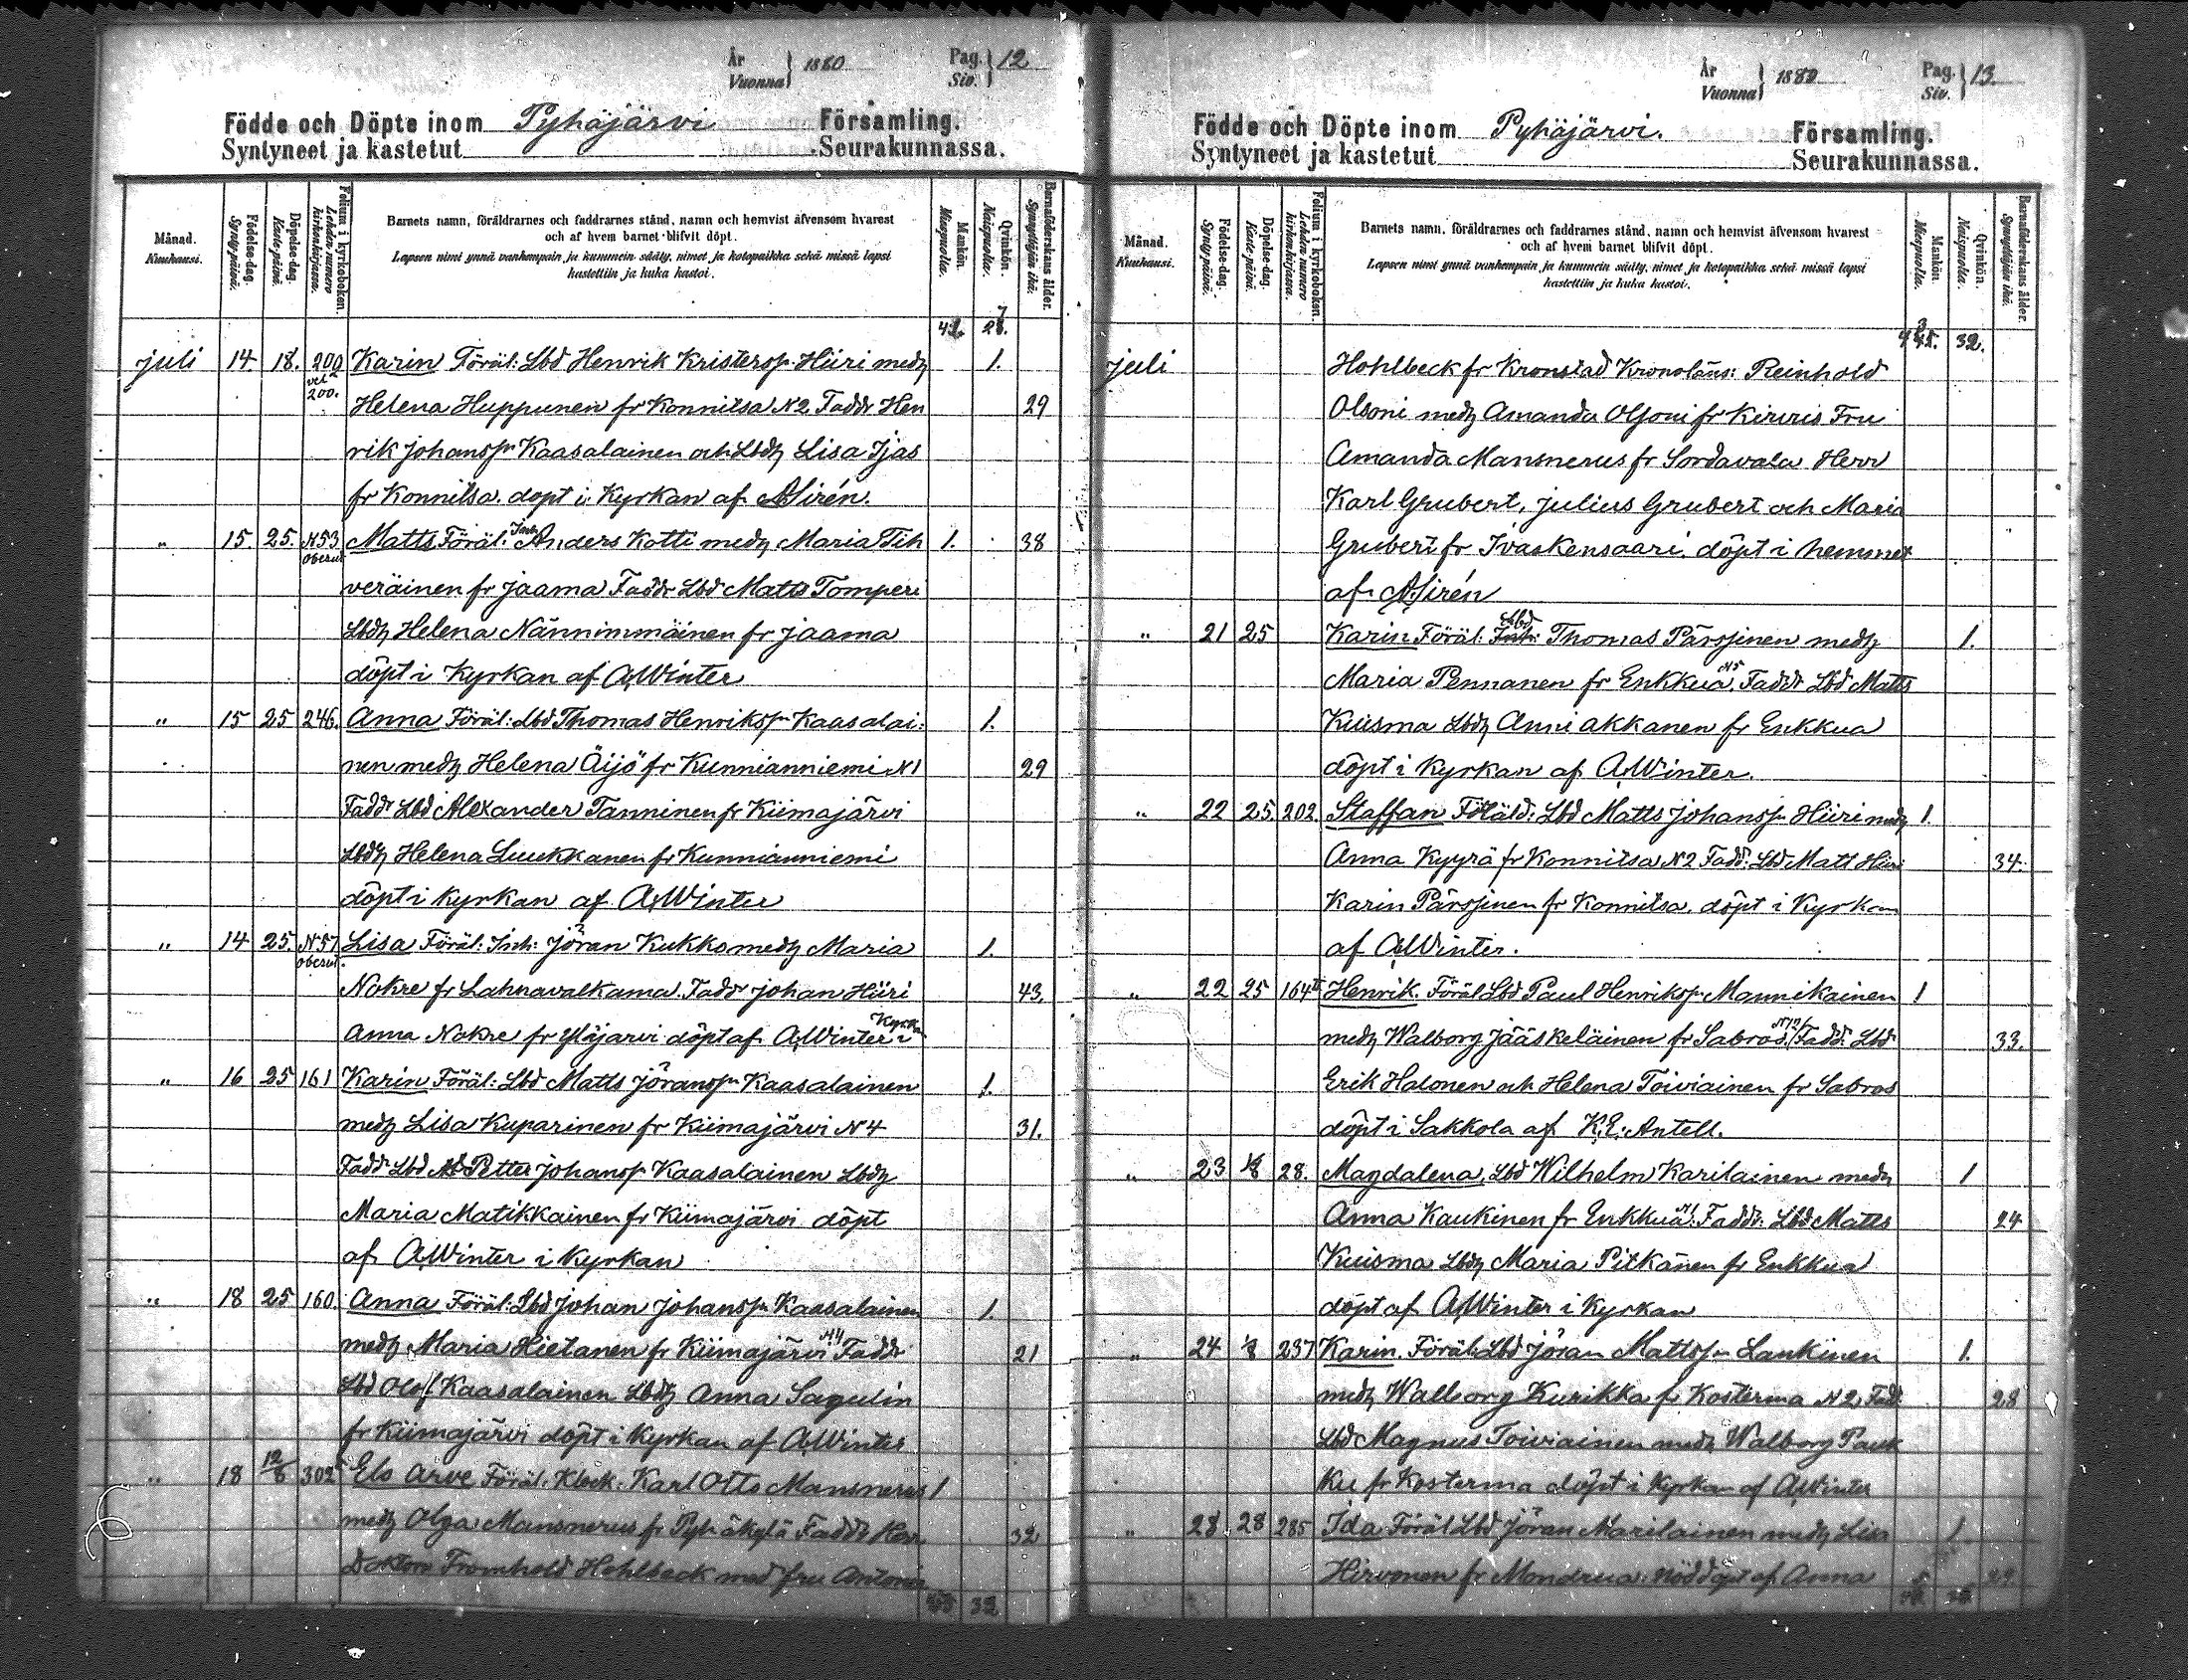 År
Vuonna } 1880
Pag.
Siv. } 12
Födde och Döpte inom Pyhäjärvi Församling.
Syntyneet ja kastetut Seurakunnassa.
Månad.
Kuukausi.
Födelse-dag.
Synty-päivä.
Döpelse-dag.
Kaste-päivä.
Folium i kyrkoboken.
Lehden numero kirkonkirjassa.
Barnets namn, föräldrarnes och faddrarnes stånd, namn och hemvist äfvensom hvarest
och af hvem barnet blifvit döpt.
Lapsen nimi ynnä vanhempain ja kummein sääty, nimet ja kotopaikka sekä missä lapsi
kastettiin ja kuka kastoi.
Mankön.
Miespuolia.
Qvinkön.
Naispuolia.
Barnaföderskans ålder.
Synnyttäjän ikä.
juli 14 18. 200 Karin Föräl: Lbd Henrik Kristersp Hiiri medh 1.
200. Helena Huppunen fr Konnitsa N2 Faddr Hen 29
rik Johanssn Kaasalainen och Lbdh Lisa Ijas
fr Konnitsa. dopt i Kyrkan af ASirén.
" 15. 25. N53 Matts Föräl: Inh Anders Kotti medh Maria Tih 1. 38
veräinen fr Jaama Faddr Lbd Matts Tomperi
Lbdh Helena Nännimmäinen fr Jaama
döpt i Kyrkan af AWinter
" 15 25 246. Anna Föräl: Lbd Thomas Henrikssn Kaasalai: 1.
nen medh Helena Äijö fr Kunnianniemi N1 29
Faddr Lbd Alexander Tanninen fr Kiimajärvi
Lbdh Helena Luukkanen fr Kunnianniemi
döpt i kyrkan af AWinter
" 14 25. N57 Lisa Föräl: Inh: Jöran Kukko medh Maria 1.
Nokre fr Lahnavalkama. Faddr Johan Hiiri 43.
Anna Nokre fr Yläjarvi döpt af AWinter i Kyrkan
" 16 25 161 Karin Föräl: Lbd Matts Jöranssn Kaasalainen 1.
medh Lisa Kuparinen fr Kiimajärvi N4 31.
Faddr Lbd Petter Johanssn Kaasalainen Lbdh
Maria Matikkainen fr Kiimajärvi döpt
af AWinter i Kyrkan
" 18 25 160. Anna Föräl: Lbd Johan Johanssn Kaasalainen 1.
medh Maria Hietanen fr Kiimajärvi N4 Faddr 21
Lbd Olof Kaasalainen Lbdh Anna Sagulin
fr Kiimajärvi döpt i Kyrkan af AWinter
" 18 12/8 302 Els Arve Föräl: Klock. Karl Otto Mansnerus 1
medh Olga Mansnerus fr Pyhäkylä Faddr Herr 32
Doktorn Fromhold Hohlbeck med fru Antonia
32
År
Vuonna } 1880
Pag.
Siv. } 13.
Födde och Döpte inom Pyhäjärvi. Församling.
Syntyneet ja kastetut Seurakunnassa.
Månad.
Kuukausi.
Födelse-dag.
Synty-päivä.
Döpelse-dag.
Kaste-päivä.
Folium i kyrkoboken.
Lehden numero kirkonkirjassa.
Barnets namn, föräldrarnes och faddrarnes stånd, namn och hemvist äfvensom hvarest
och af hvem barnet blifvit döpt.
Lapsen nimi ynnä vanhempain ja kummein sääty, nimet ja kotopaikka sekä missä lapsi
kastettiin ja kuka kastoi.
Mankön.
Miespuolia.
Qvinkön.
Naispuolia.
Barnaföderskans ålder.
Synnyttäjän ikä.
32.
juli Hohlbeck fr Kronstad Kronoläns: Reinhold
Olsoni medh Amanda Olsoni fr Kiwiris Fru
Amanda Mansnerus fr Sordavala Herr
Karl Grubert, Julius Grubert och Maria
Grubert fr Ivaskensaari. döpt i hemmet
af ASirén
" 21 25 Karin Föräl: Lbd Thomas Pärssinen medh 1.
Maria Pennanen fr Enkkua N5. Faddr Lbd Matts
Kuisma Lbdh Anni Akkanen fr Enkkua
döpt i Kyrkan af AWinter.
" 22 25. 202. Staffan Föräld: Lbd Matts Johanssn Hiiri medh 1.
Anna Kyyrä fr Konnitsa N2 Fadd: Lbd Matt Hiiri 34.
Karin Pärssinen fr Konnitsa. döpt i Kyrkan
af AWinter.
" 22 25 164 Henrik. Föräl Lbd Paul Henrikssn Mannikainen 1
medh Walborg Jääskeläinen fr Sabros. Fadd: Lbd 33.
Erik Halonen och Helena Toiviainen fr Sabros
döpt i Sakkola af K.E. Antell.
" 23 1/8 28. Magdalena, Lbd Wilhelm Karilainen medh 1
Anna Kaukinen fr Enkkua N1. Faddr: Lbd Matts 24
Kuisma Lbdh Maria Pitkänen fr Enkkua
döpt af AWinter i Kyrkan
" 24 1/8 237 Karin. Föräl: Lbd Jöran Mattssn Lankinen 1.
medh Walborg Kurikka fr Kosterma N2, Fadd: 28
Lbd Magnus Toiviainen medh Walborg Pauk
ku fr Kosterma döpt i Kyrkan af AWinter
" 28 28 285 Ida Föräl Lbd Jöran Marilainen medh Lisa 1
Hirvonen fr Mondrua. Nöddöpt af Anna 29